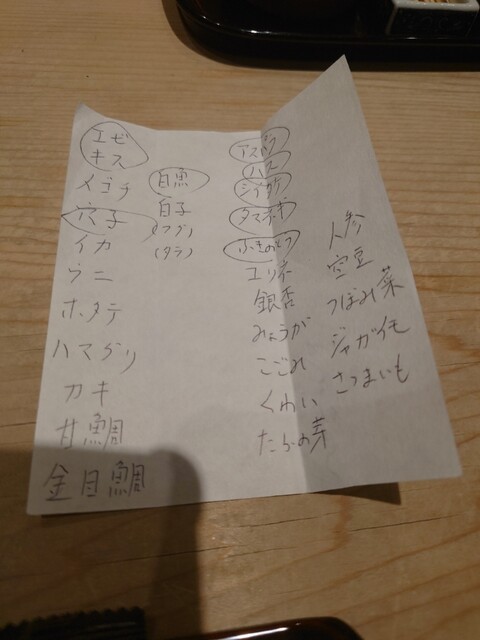 エビ
キス
メゴチ
穴子
イカ
ウニ
ホタテ
ハマグリ
カキ
甘鯛
金目鯛
白魚
白子
(フグ)
(タラ)
アスパラ
ハス
シイタケ
タマネギ
ふきのとう
ユリネ
銀杏
みょうが
こごみ
くわい
たらの芽
人参
空豆
つぼみ菜
ジャガイモ
さつまいも